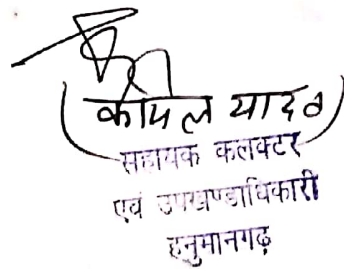 (कोपल यादव)
सहायक कलक्टर
एवं उपखण्डाधिकारी
हनुमानगढ़